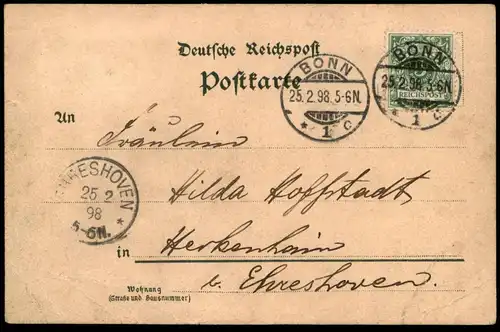 Deutsche Reichspost
Postkarte
BONN
25.2.98.5-6N.
* 1 c
BONN
25.2.98.5-6N.
* 1 c
REICHSPOST
An
Fräulein
Hilda Hoffstadt
EHRESHOVEN
25 2
98
5-6N.
*
in
Herkenhäin
b. Ehreshoven.
Wohnung
(Straße und Hausnummer)